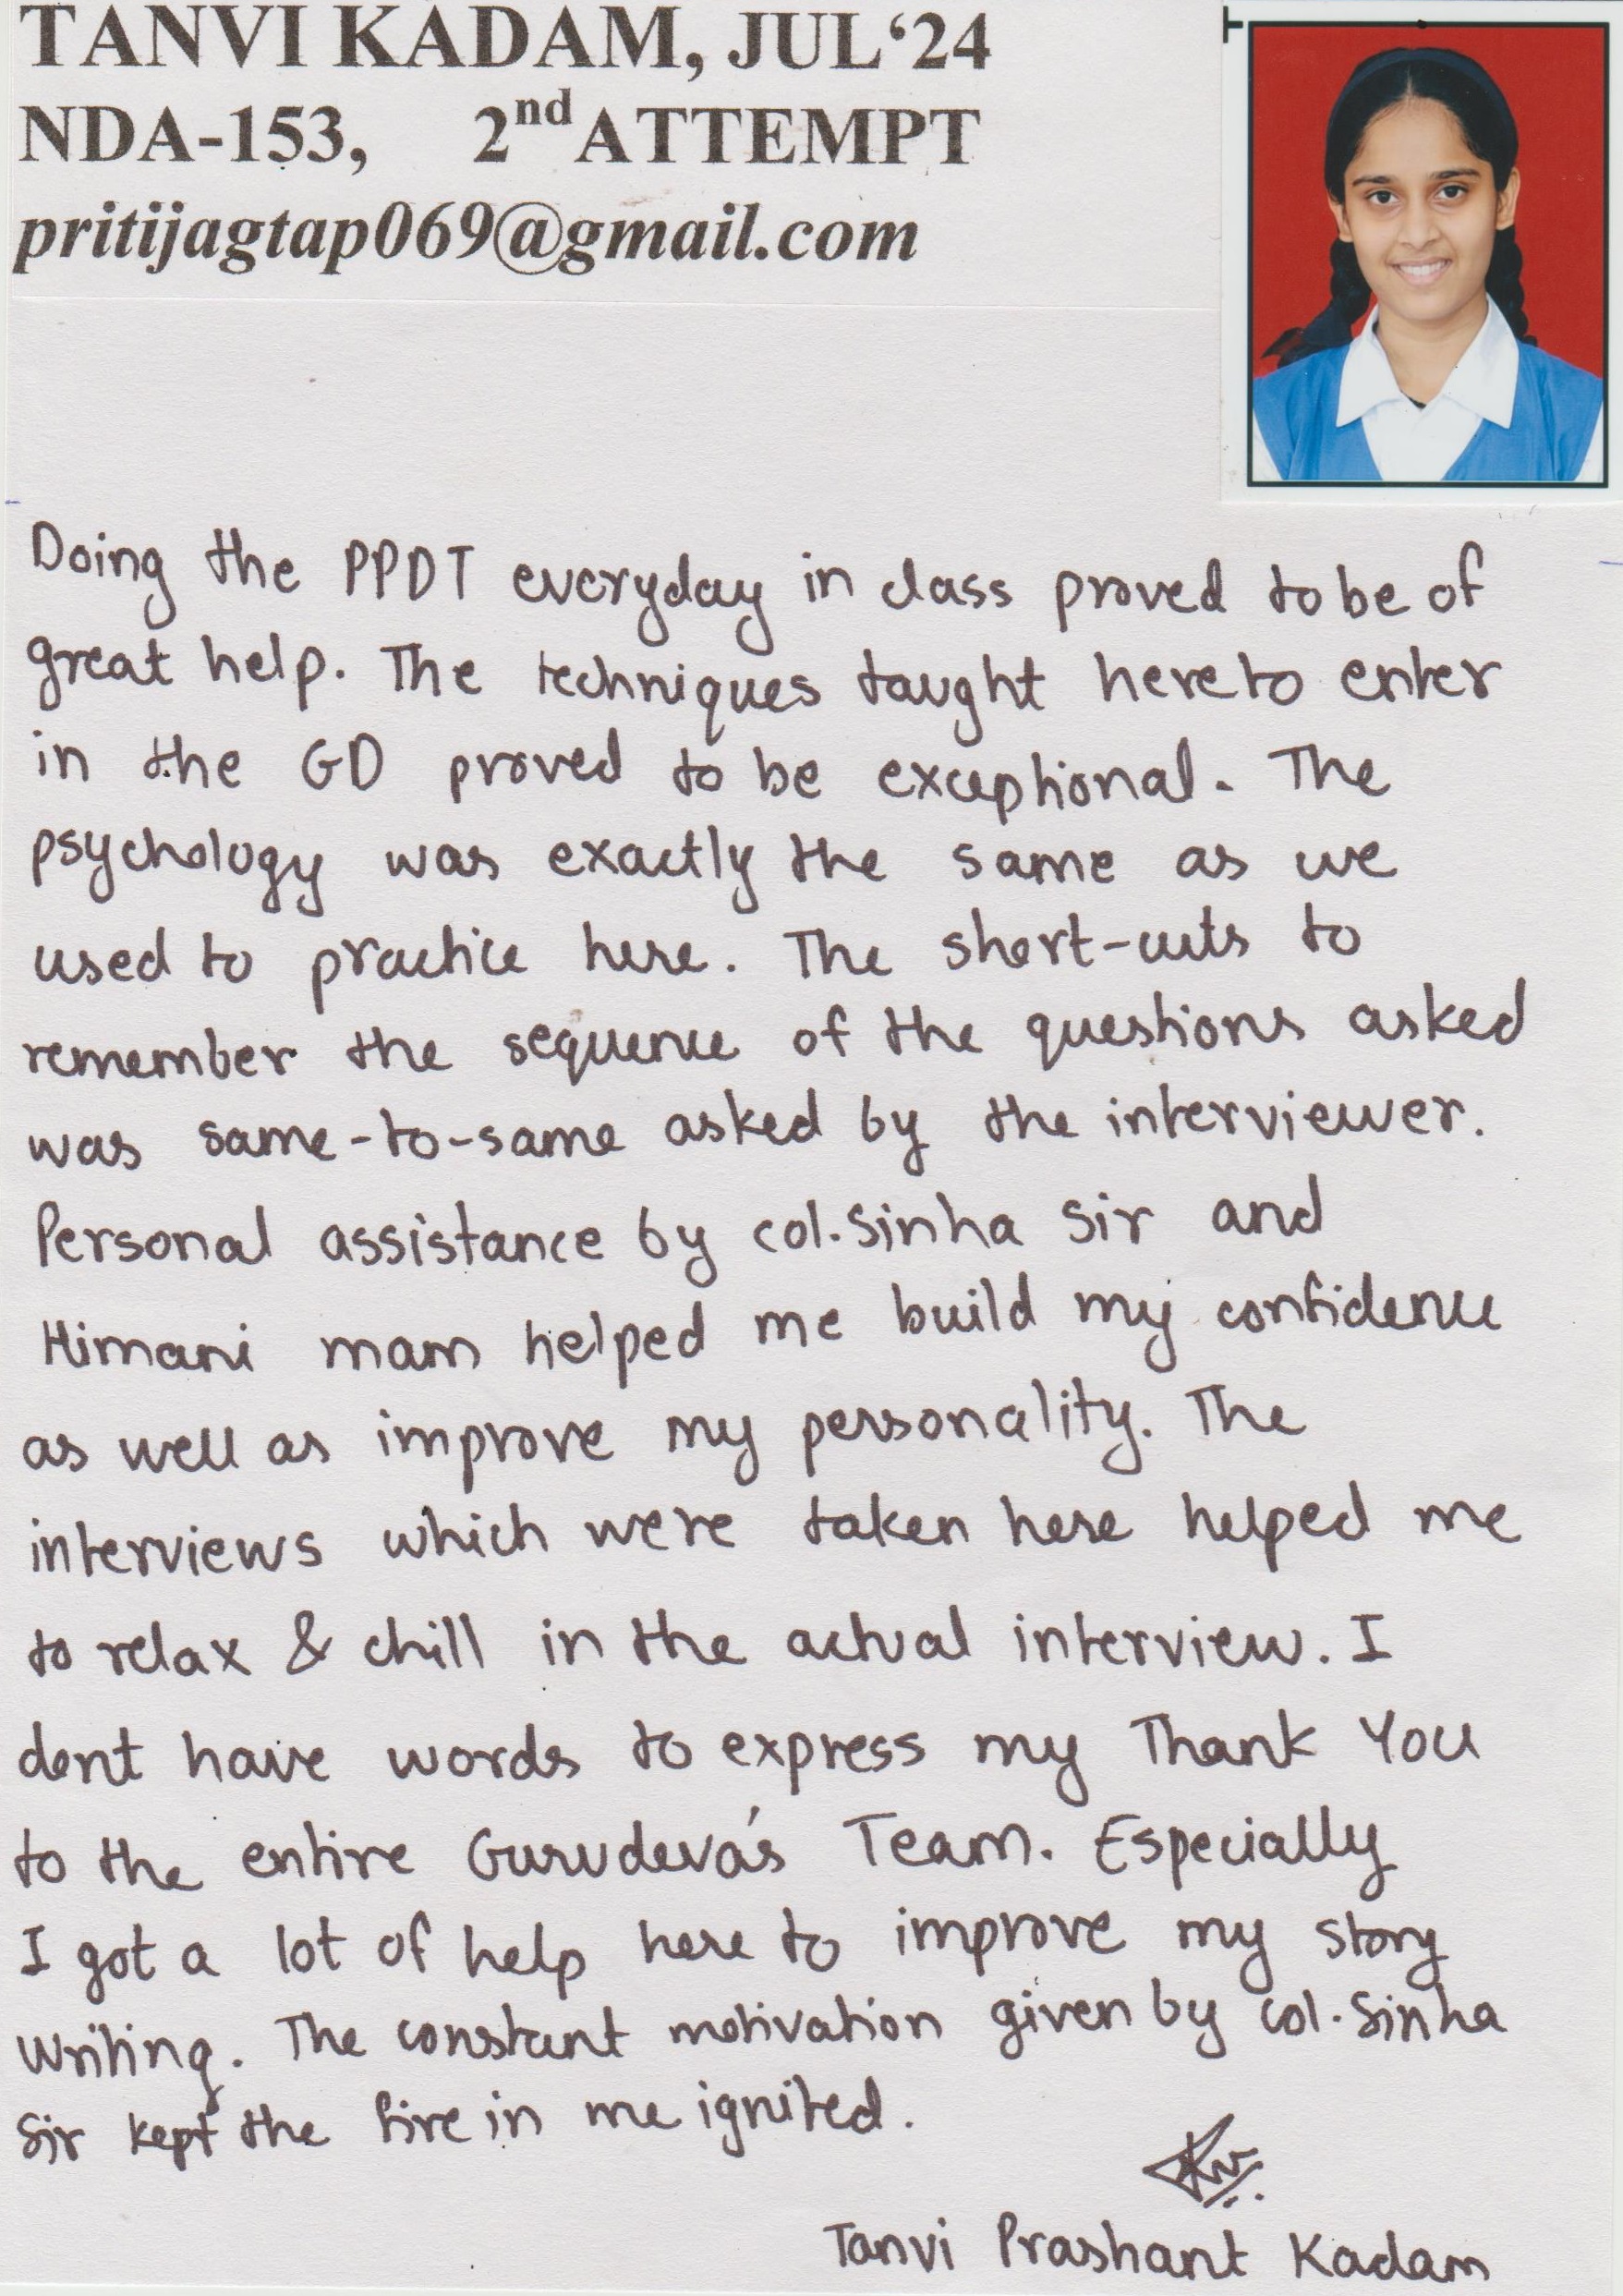 TANVI KADAM, JUL‘24
NDA-153, 2nd ATTEMPT
pritijagtap069@gmail.com
Doing the PPDT everyday in class proved to be of
great help. The techniques taught here to enter
in the GD proved to be exceptional. The
psychology was exactly the same as we
used to practice here. The short-cuts to
remember the sequence of the questions asked
was same-to-same asked by the interviewer.
Personal assistance by col. Sinha Sir and
Himani mam helped me build my confidence
as well as improve my personality. The
interviews which were taken here helped me
to relax & chill in the actual interview. I
dont have words to express my Thank You
to the entire Gurudeva's Team. Especially
I got a lot of help here to improve my story
writing. The constant motivation given by col. Sinha
Sir kept the fire in me ignited.
Tanvi Prashant Kadam